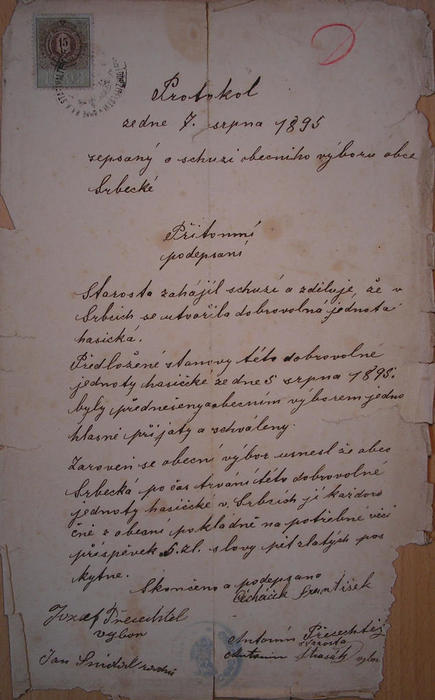 15
Protokol
ze dne 7. srpna 1895
sepsaný o schuzi obecního výboru obce
Srbecké
Přítomní
podepsaní
Starosta zahájil schuzi a zděluje, že v
Srbcích se utvořila dobrovolná jednota
hasická.
Předložené stanovy této dobrovolné
jednoty hasičké ze dne 5 srpna 1895
byly přednešeny a obecním výborem jedno
hlasně přijaty a schváleny.
Zaroveň se obecní výbor usnesl že obec
Srbecká po čas trvání této dobrovolné
jednoty hasičké v Srbcích jí každoro
čně z obecní pokladně na potřebné věci
příspěvek 5. zl. slovy pět zlatých pos
kytne.
Skončeno a podepsano
František
Jozef Přesechtěl
výbor
Antonín
starosta
Jan radní
Antonín výbor